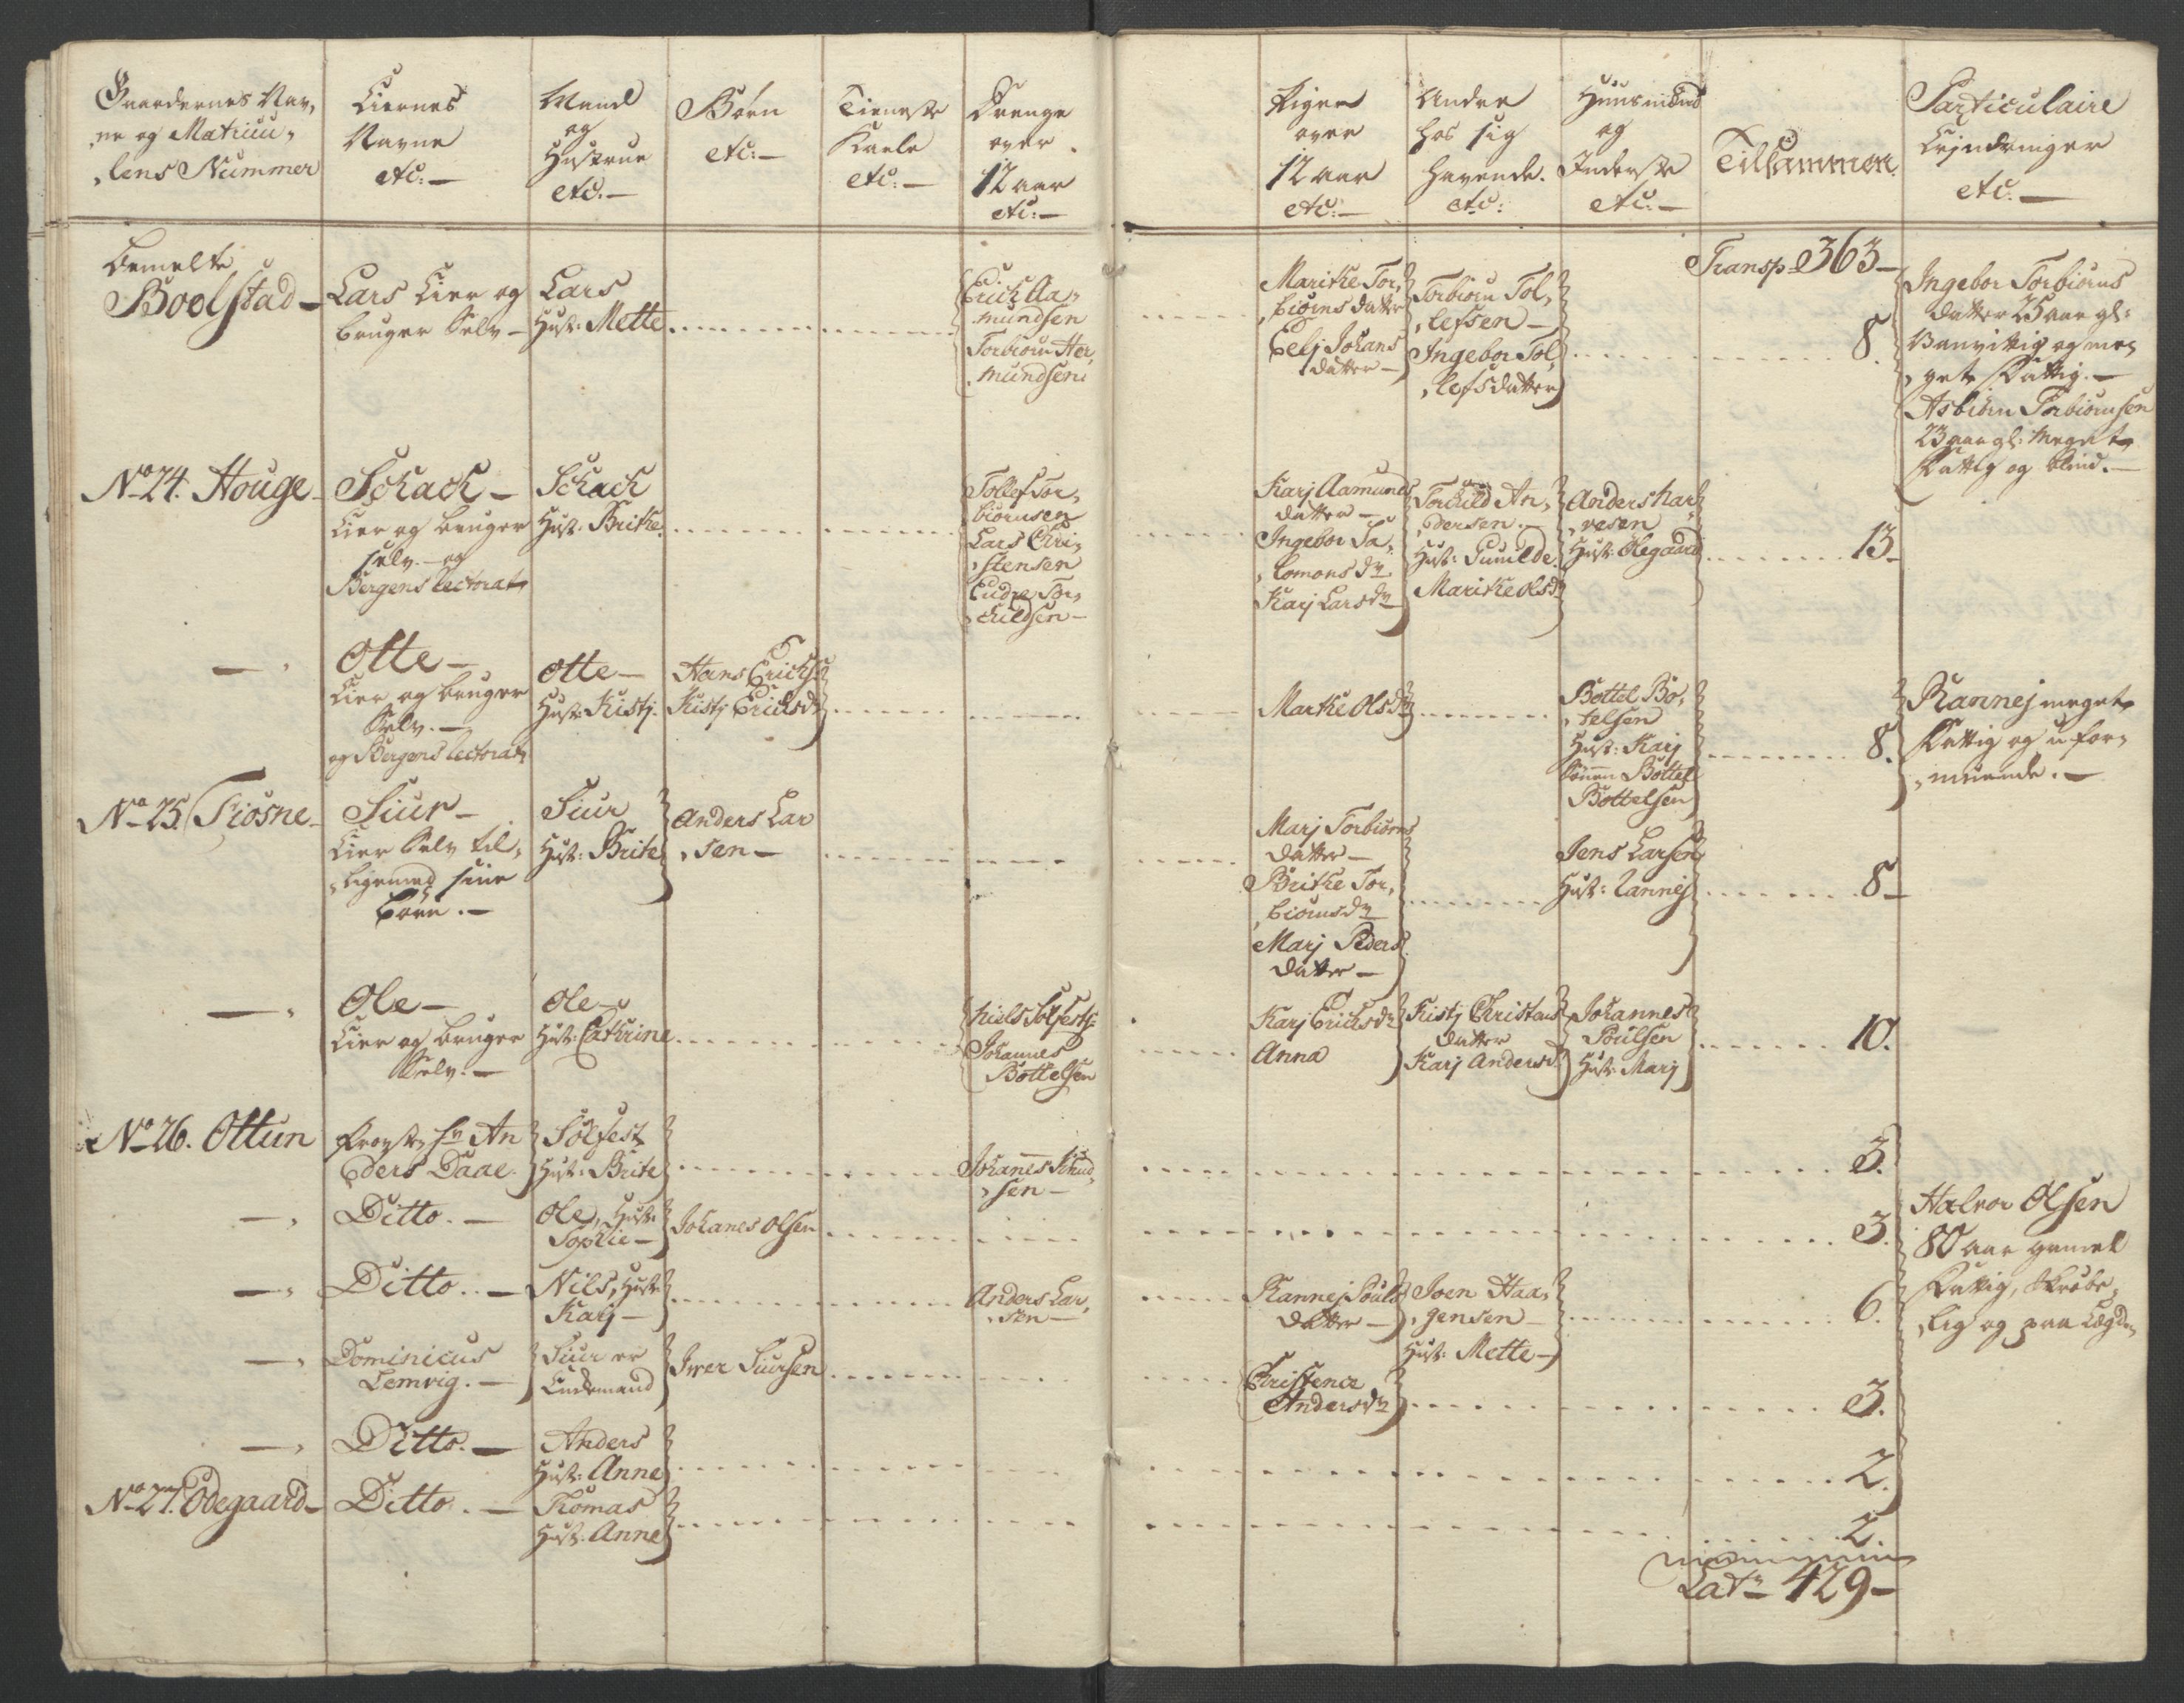 Gaardernes Nav,
ne og Matricu,
lens Nummer
Eiernes
Navne
etc: —
Mand
og
Hustrue
etc. —
Børn
etc: —
Tieneste
Karle
etc: —
Drenge
over
12 aar
etc: —
Piger
over
12 aar
etc: —
Andre
hos sig
havende.
etc:
Huusmænd
og
Inderste
etc: —
Tilsammen.
Particulaire
etc: —
Bemelte
Boolstad —
Lars Eier og
bruger Selv —
Lars
Hust: Mette
Erich Aa,
mundsen
Torbiørn Her,
mundsen
Marithe Tor,
biørns datter
Eelj Johans
datter —
Torbiørn Tol,
lefsen —
Ingebor Tol,
lefsdatter
Transp 363 —
8.
Ingebor Torbiørns
datter 25 aar gl:
Vanvittig og me,
get fattig. —
Asbiørn Torbiørnsen
23 aar gl: meget
fattig og blind. —
No 24. Houge —
Schach —
Eier og bruger
selv. — og
Bergens lectorat
Schach
Hust: Brithe
Tollef Tor,
biørnsen
Lars Chri,
stensen
Endre Tor,
childsen —
Karj Aamunds
datter —
Ingebor Sa,
lomons dr
Karj Larsdr
Torchild An,
dersen. —
Hust: Gunilde.
Marithe Olsdr
Anders Har,
vesen
Hust: Olegaard
13 —
— "
Otte —
Eier og bruger
Selv. —
og Bergens lectorat
Otte —
Hust: Kistj.
Hans Erichs:
Kistj Erichsdr
Marthe Olsdr
Bottel Bo,
telsen
Hust: Karj
Sønnen Bottel
Bottelsen
8.
Rannej meget
fattig og ufor,
muende. —
No 25. Tiøsne —
Siur —
Eier Selv til,
ligemed sine
Børn. —
Siur
Hust: Brite
Anders Lar
sen —
Marj Torbiørns
datter —
Brithe Tor,
biørnsdr
Marj Peders
datter —
Jens Larsen
Hust: Rannej
8 —
— "
Ole —
Eier og bruger
Selv. —
Ole —
Hust: Cathrine
Niels Solfests:
Johannes
Bottelsen
Karj Erichsdr
Anna
Kistj Christens
datter
Karj Andersd:
Johannes
Poulsen
Hust: Marj
10.
No 26. Ottun
Provst Hr An
ders Daae.
Solfest
Hust: Brite
Johanes Knud,
sen —
3.
— "
Ditto. —
Ole, Hust:
Sophie —
Johanes Olsen
3.
Halvor Olsen
80 aar gamel
fattig, skrøbe,
lig og paa Lægd,
— "
Ditto. —
Nils, Hust:
Karj —
Anders Lar,
sen —
Rannej Pouls
datter —
Joen Haa,
gensen —
Hust: Mette —
6.
— "
Dominicus
Lemvig. —
Siur er
Enkemand
Iver Siursen
Christence
Andersdr
3.
— "
Ditto. —
Anders
Hust: Anne
2.
No 27. Ødegaard —
Ditto. —
Thomas
Hust: Anne
2.
Latr 429 —